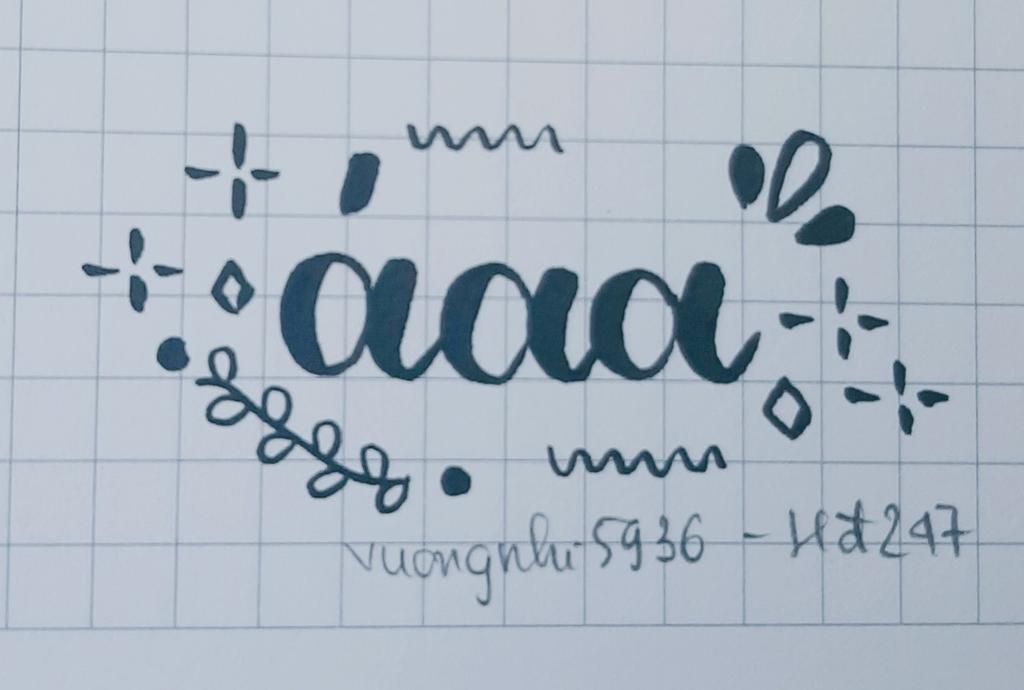 aaa
vuongnhi5936 - Hđ247